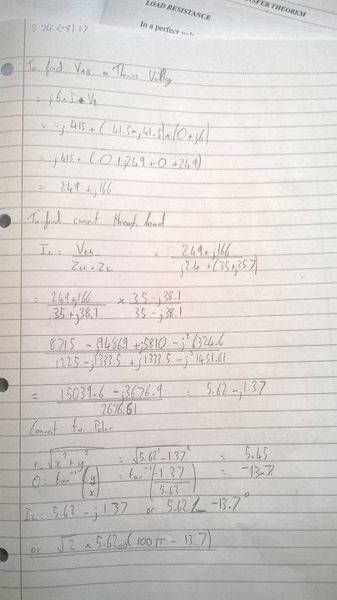 LOAD RESISTANCE
In a perfect
SFER THEOREM
To find VAB = Voltage
= j6 × I + V2
= -j415 + (41.5 - j41.5) × (0 + j6)
= -j415 + (0 + j249 + 0 + 249)
= 249 + j166
To find current through load
IL = Vth / Zth + ZL = 249 + j166 / j2.4 + (35 + j35.7)
= 249 + j166 / 35 + j38.1 × 35 - j38.1 / 35 - j38.1
8715 - j9486.9 + j5810 - j²6324.6
1225 - j1333.5 + j1333.5 - j²1451.61
= 15039.6 - j3676.9 / 2676.61 = 5.62 - j1.37
Convert to Polar
r = √x² + y² = √5.62² - 1.37² = 5.45
θ = tan⁻¹(y/x) = tan⁻¹(-1.37/5.62) = -13.7
IL = 5.62 - j1.37 or 5.62∠-13.7°
or √2 × 5.62 (100 - 13.7)